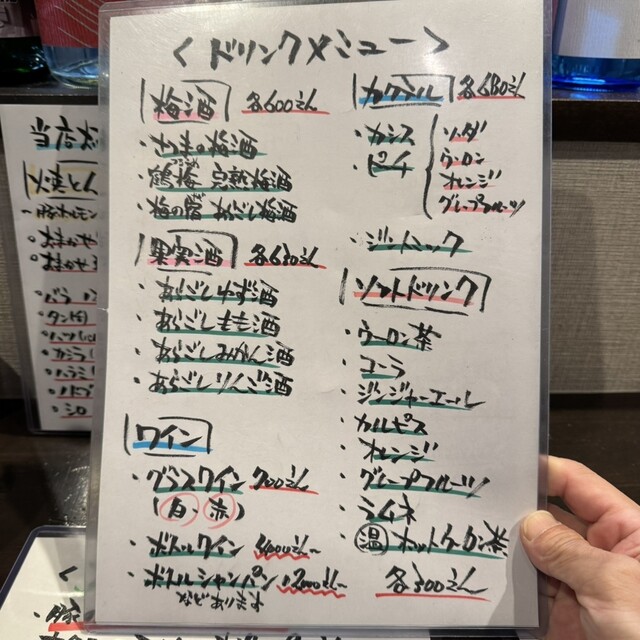 ＜ドリンクメニュー＞
梅酒 各600えん
・梅酒
・鶴梅 完熟梅酒
・梅の宿 あらごし梅酒
果実酒 各680えん
・あらごしゆず酒
・あらごしもも酒
・あらごしみかん酒
・あらごしりんご酒
ワイン
・グラスワイン 700えん
(白・赤)
・ボトルワイン 4000えん〜
・ボトルシャンパン 12000えん〜
などあります
カクテル 各680えん
・カシス
・ピーチ
ソーダ
ウーロン
オレンジ
グレープフルーツ
・ジントニック
ソフトドリンク
・ウーロン茶
・コーラ
・ジンジャーエール
・カルピス
・オレンジ
・グレープフルーツ
・ラムネ
・温 ホットウーロン茶
各300えん
当店
・おまかせ
・おまかせ
・バラ
・タン
・ハツ
・カシラ
・ハラミ
・シロ